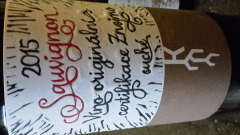 2015
Sauvignon
Víno originální
certifikace Znojmo
suché